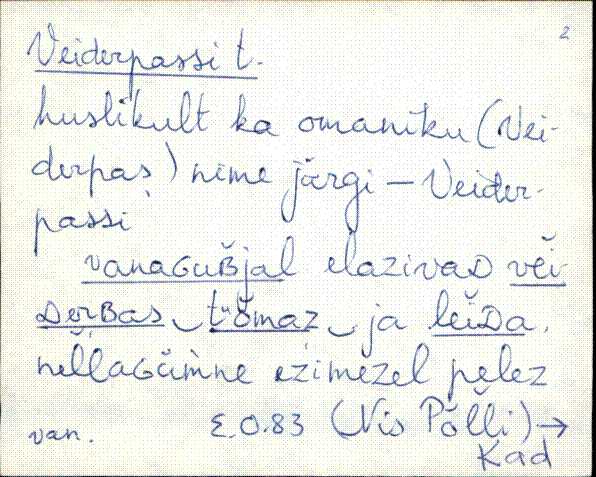 2
Veiderpassi t.
huslikult ka omaniku (Vei-
derpas) nime järgi – Veider-
passi
vanaGuʙjal elazivaᴅ vei-
ᴅerʙas tomaz ja leiᴅa,
ezimezel pelez
van. E.O.83 (Nis Põlli) →
Kad